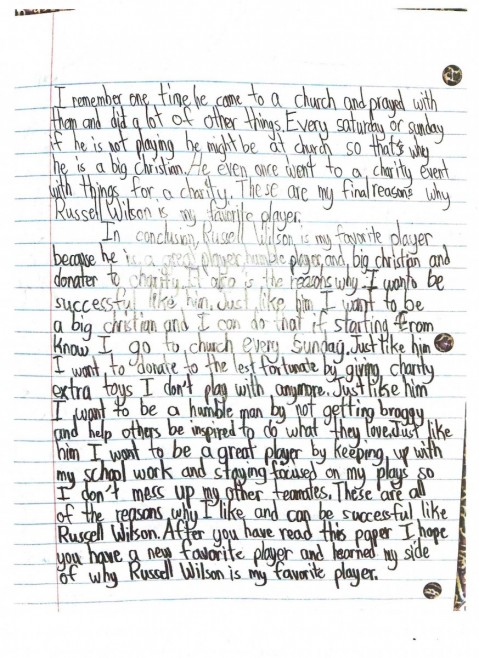 I remember one time he came to a church and prayed with
them and did a lot of other things. Every saturday or sunday
if he is not playing he might be at church so that's why
he is a big Christian. He even once went to a charity event
with things for a charity. These are my final reasons why
Russell Wilson is my favorite player.
In conclusion, Russell Wilson is my favorite player
because he is a great player, humble player, and big christian and
donater to charity. It also is the reasons why I want to be
successful like him. Just like him I want to be
a big christian and I can do that if starting from
know I go to church every Sunday. Just like him
I want to donate to the lest fortunate by giving charity
extra toys I don't play with anymore. Just like him
I want to be a humble man by not getting braggy
and help others be inspired to do what they love. Just like
him I want to be a great player by keeping up with
my school work and staying focused on my plays so
I don't mess up my other teamates. These are all
of the reasons why I like and can be successful like
Russell Wilson. After you have read this paper I hope
you have a new favorite player and learned my side
of why Russell Wilson is my favorite player.